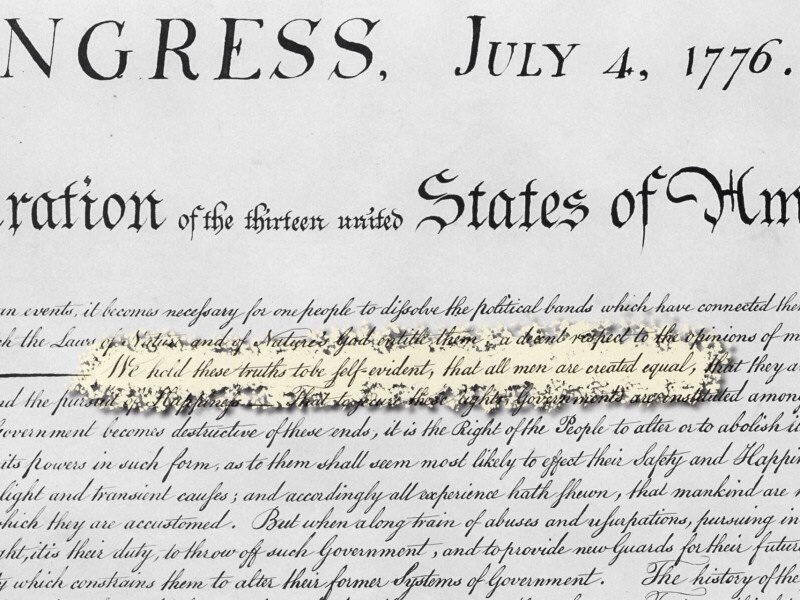 NGRESS, JULY 4, 1776.
ration of the thirteen united States of Am
an events, it becomes necessary for one people to dissolve the political bands which have connected them
h the Laws of Nature and of Nature's God entitle them, a decent respect to the opinions of m
We hold these truths to be self-evident, that all men are created equal, that they ar
nd the pursuit of Happiness.— That to secure these rights, Governments are instituted among
Government becomes destructive of these ends, it is the Right of the People to alter or to abolish it
its powers in such form, as to them shall seem most likely to effect their Safety and Happin
light and transient causes; and accordingly all experience hath shewn, that mankind are
hich they are accustomed. But when a long train of abuses and usurpations, pursuing in
ght, it is their duty, to throw off such Government, and to provide new Guards for their future
y which constrains them to alter their former Systems of Government. The history of the